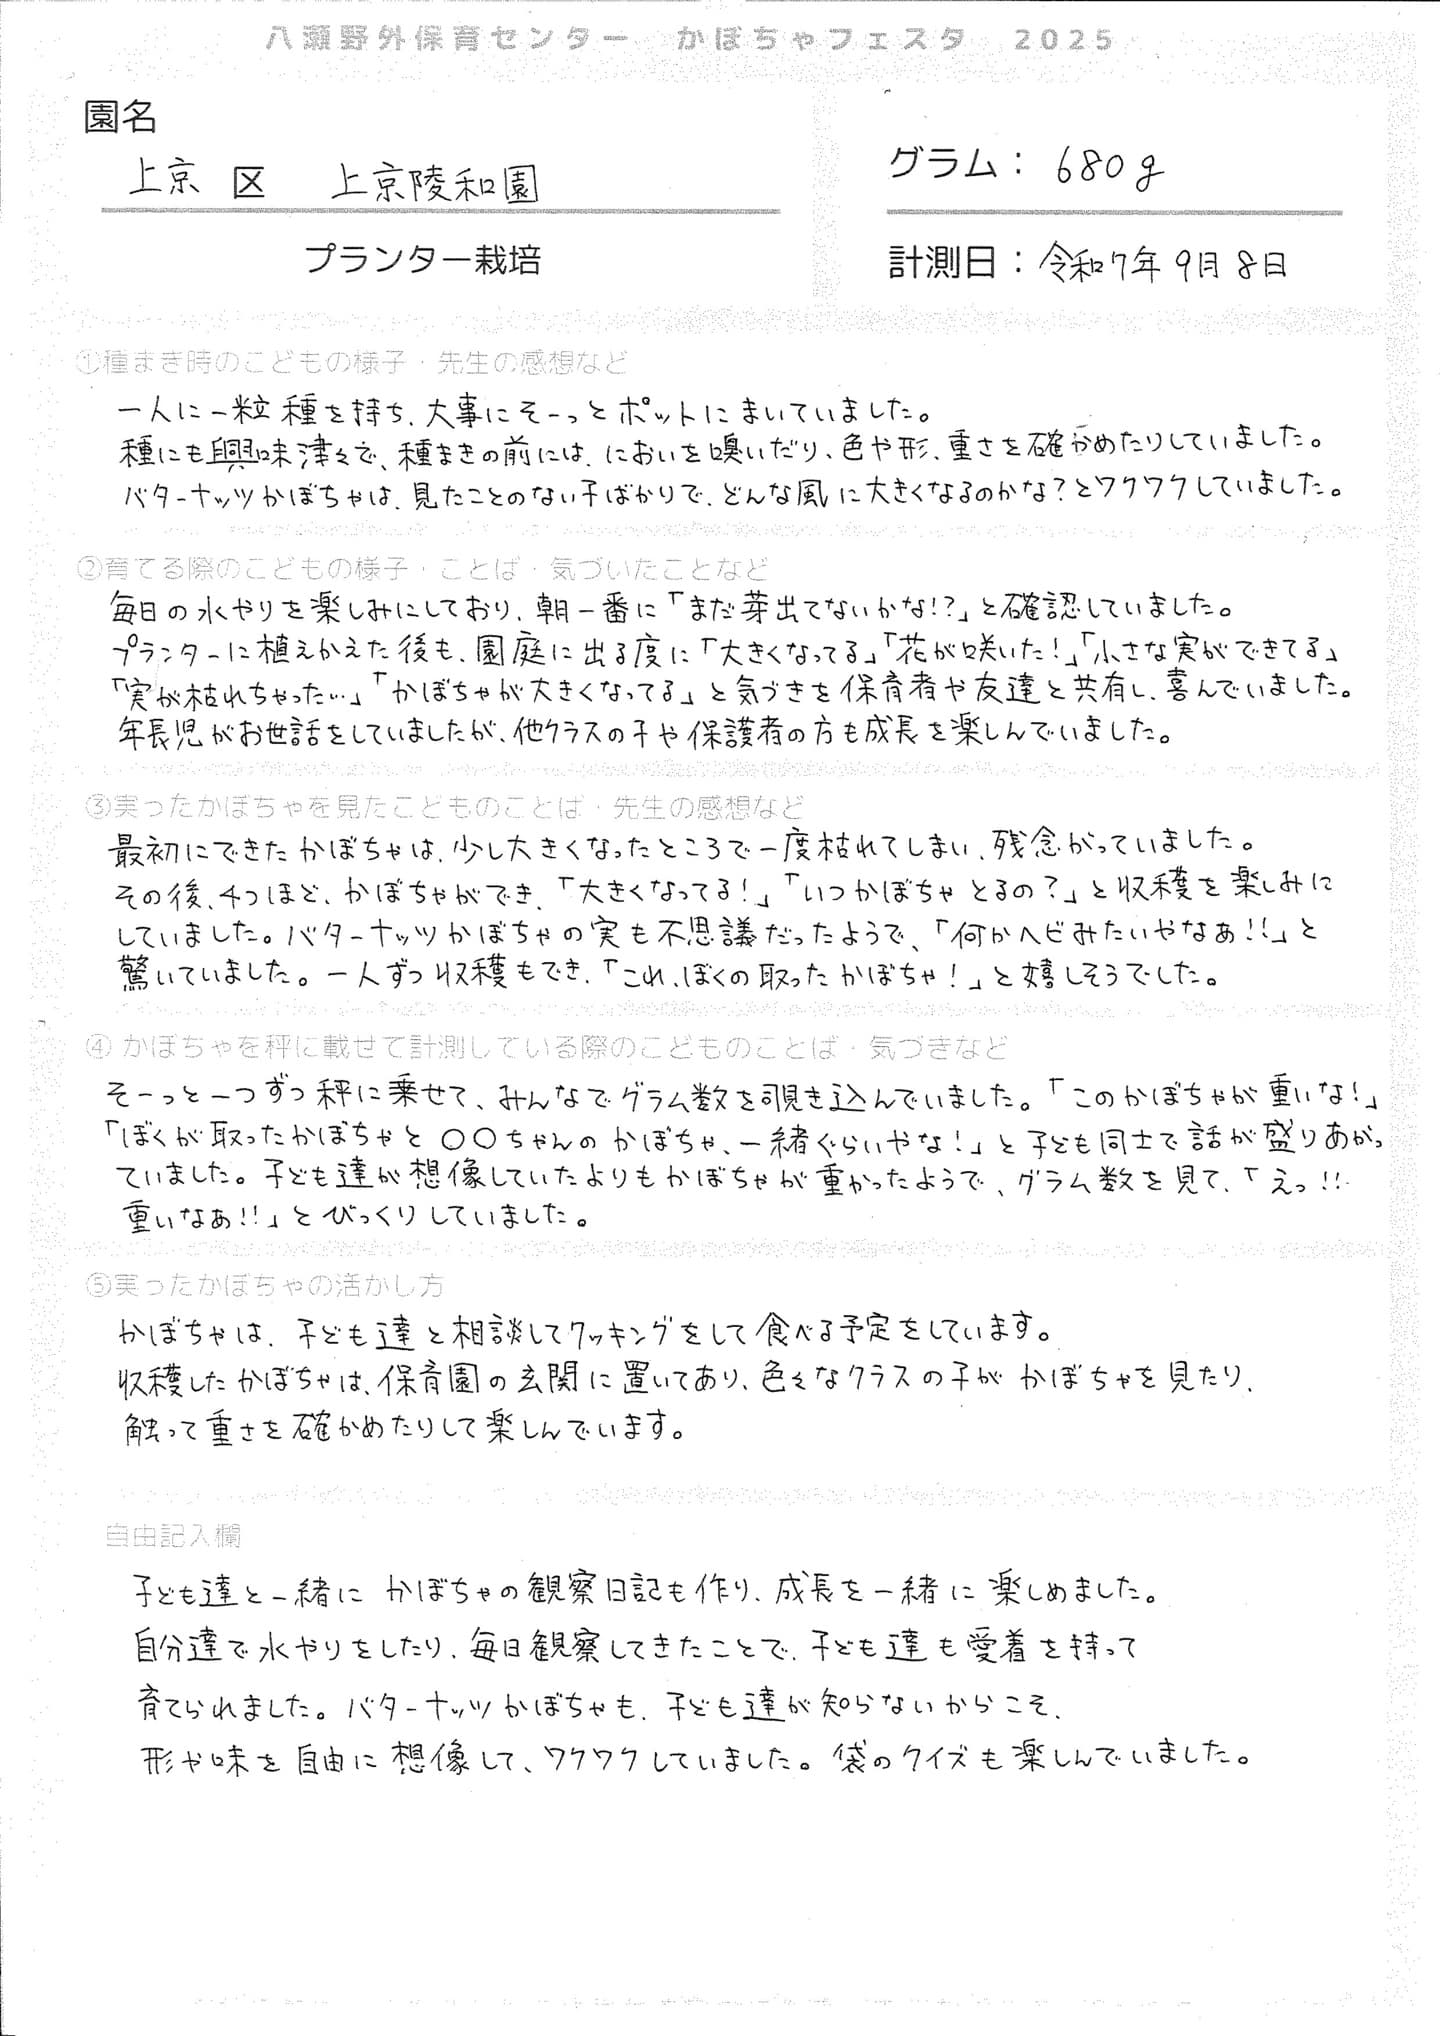 八瀬野外保育センター　かぼちゃフェスタ　2025
園名
上京 区　上京陵和園
グラム： 680g
プランター栽培
計測日：令和7年 9月 8日
①種まき時のこどもの様子・先生の感想など
一人に一粒 種を持ち、大事にそーっと ポットに まいていました。
種にも興味津々で、種まきの前には、においを嗅いだり、色や形、重さを確かめたりしていました。
バターナッツかぼちゃは、見たことのない子ばかりで、どんな風に大きくなるのかな？とワクワクしていました。
②育てる際のこどもの様子・ことば・気づいたことなど
毎日の水やりを楽しみにしており、朝一番に「まだ芽出てないかな!?」と確認していました。
プランターに植えかえた後も、園庭に出る度に「大きくなってる」「花が咲いた！」「小さな実ができてる」
「実が枯れちゃった…」「かぼちゃが大きくなってる」と気づきを保育者や友達と共有し、喜んでいました。
年長児がお世話をしていましたが、他クラスの子や保護者の方も成長を楽しんでいました。
③実ったかぼちゃを見たこどものことば・先生の感想など
最初にできたかぼちゃは、少し大きくなったところで一度枯れてしまい、残念がっていました。
その後、4つほど、かぼちゃができ、「大きくなってる！」「いつかぼちゃとるの？」と収穫を楽しみに
していました。バターナッツかぼちゃの実も不思議だったようで、「何かヘビみたいやなぁ!!」と
驚いていました。一人ずつ収穫もでき、「これ、ぼくの取ったかぼちゃ！」と嬉しそうでした。
④かぼちゃを秤に載せて計測している際のこどものことば・気づきなど
そーっと一つずつ秤に乗せて、みんなでグラム数を覗き込んでいました。「このかぼちゃが重いな！」
「ぼくが取ったかぼちゃと〇〇ちゃんのかぼちゃ、一緒ぐらいやな！」と子ども同士で話が盛りあがっ
ていました。子ども達が想像していたよりもかぼちゃが重かったようで、グラム数を見て、「えっ!!
重いなぁ!!」とびっくりしていました。
⑤実ったかぼちゃの活かし方
かぼちゃは、子ども達と相談してクッキングをして食べる予定をしています。
収穫したかぼちゃは、保育園の玄関に置いてあり、色々なクラスの子がかぼちゃを見たり、
触って重さを確かめたりして楽しんでいます。
自由記入欄
子ども達と一緒にかぼちゃの観察日記も作り、成長を一緒に楽しめました。
自分達で水やりをしたり、毎日観察してきたことで、子ども達も愛着を持って
育てられました。バターナッツかぼちゃも、子ども達が知らないからこそ、
形や味を自由に想像して、ワクワクしていました。袋のクイズも楽しんでいました。